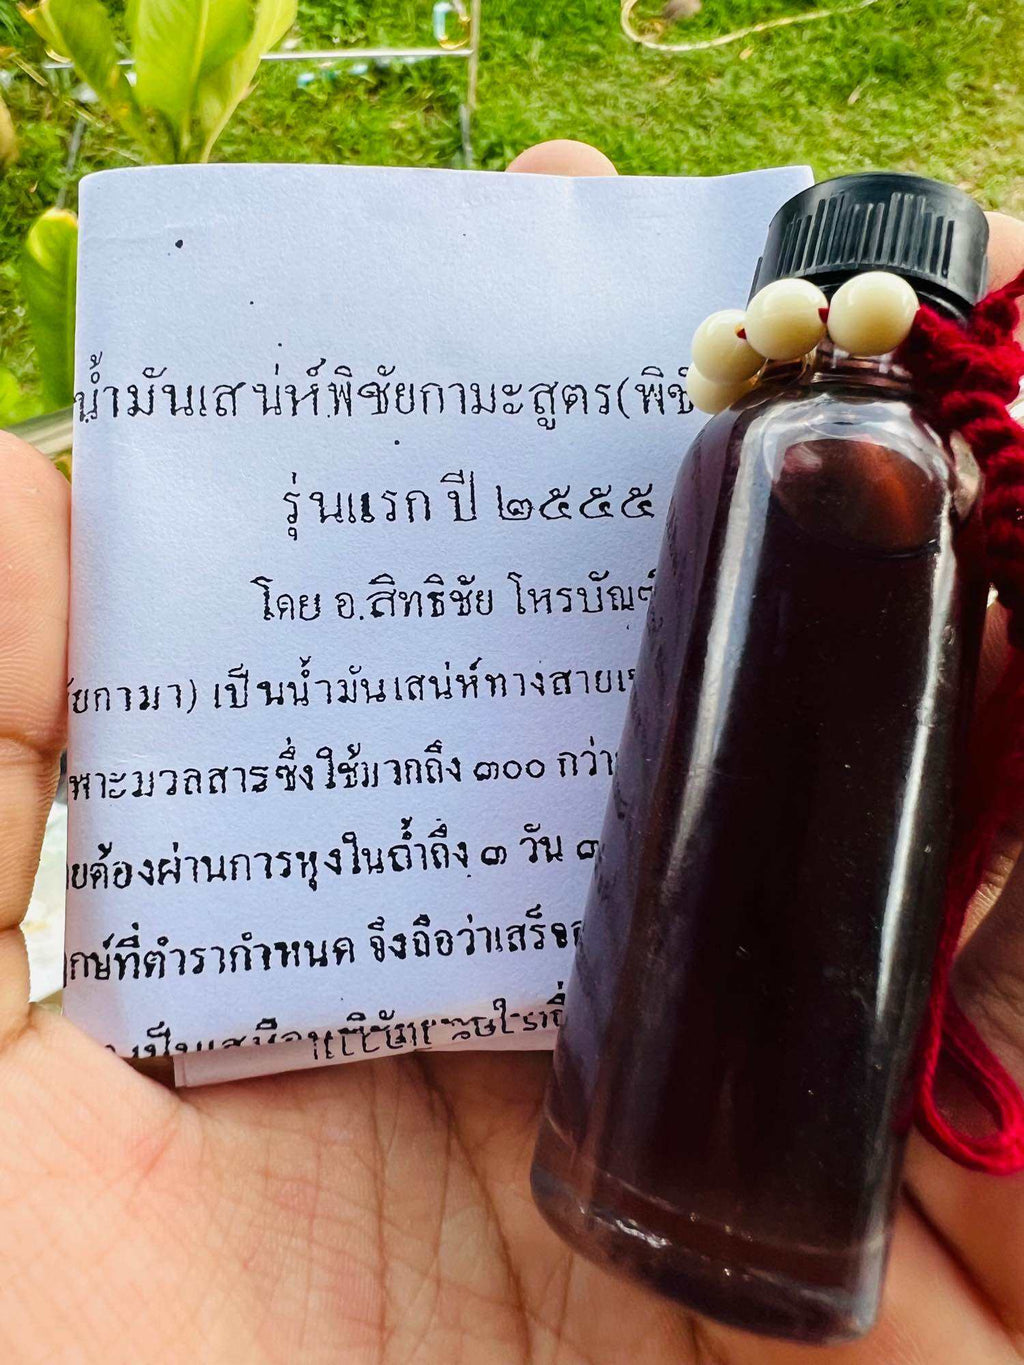 น้ำมันเสน่ห์พิชัยกามะสูตร(พิชั
รุ่นแรก ปี ๒๕๕๕
โดย อ.สิทธิชัย โหรบัณฑ์
ัยกามา) เป็นน้ำมันเสน่ห์ทางสายเ
พาะมวลสารซึ่งใช้มากถึง ๓๐๐ กว่า
ยต้องผ่านการหุงในถ้ำถึง ๓ วัน ๓
กษ์ที่ตำรากำหนด จึงถือว่าเสร็จ
เป็นเสมือน